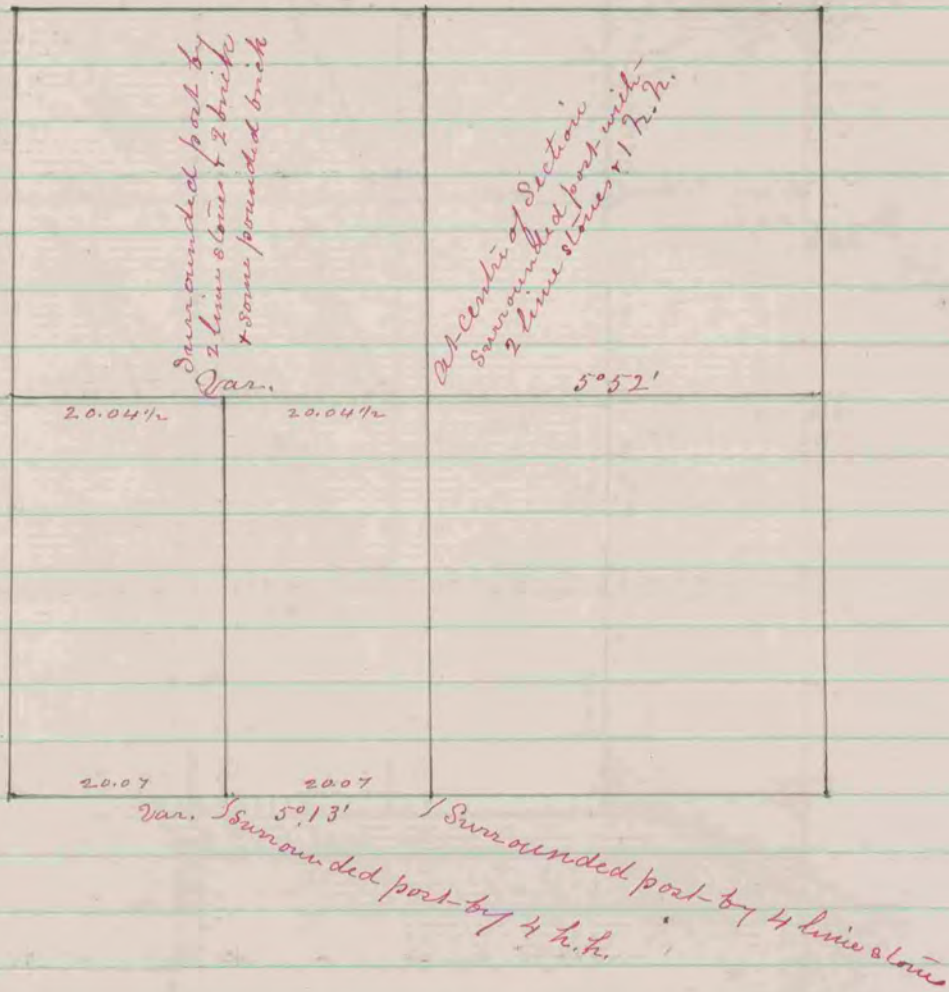 Surrounded post by
2 lime stones & 2 brick
+ some pounded brick
At centre of Section
Surrounded post with
2 lime stones + 1 h.h.
Var.
5° 52'
20.04 1/2
20.04 1/2
20.07
20.07
Var.
5° 13'
Surrounded post by 4 h.h.
Surrounded post by 4 lime stone